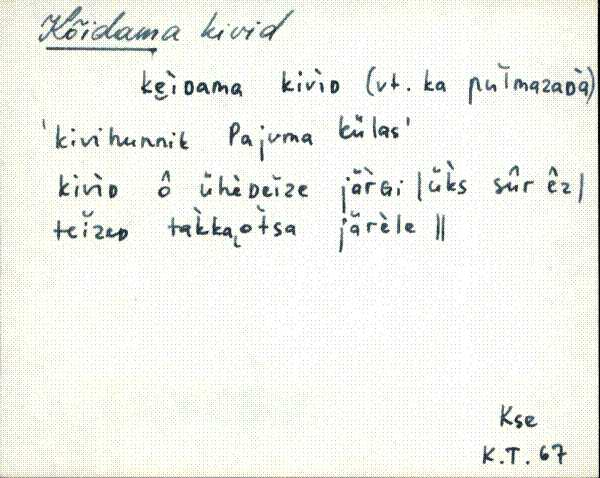 Kõidama kivid
ke̮ìdama kivìᴅ (vt. ka pul̆mazaᴅà)
'kivihunnik Pajuma külas'
kivìᴅ ô ühèᴅei̯ze jär̀ɢi | ük̀s sûr êz |
teĭzeᴅ tak̀ka‿ot̀sa järèle ||
Kse
K.T. 67